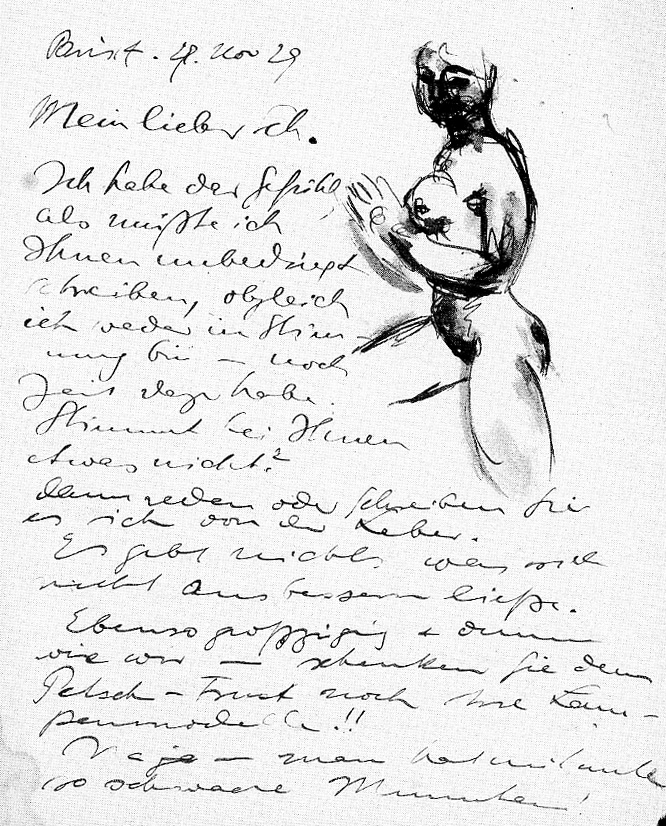 28. Nov 29
Mein lieber Sch.
Ich habe das Gefühl,
als müßte ich
Ihnen unbedingt
schreiben, obgleich
ich weder in Stim-
mung bin – noch
Zeit dazu habe.
Stimmt bei Ihnen
etwas nicht?
dann reden oder schreiben Sie
es sich von der Leber.
Es gibt nichts was sich
nicht ausbessern ließe.
Ebenso großzügig + dumm
wie wir – schenken Sie dem
Petsch – noch Ihre Lam-
penmodelle!!
Na ja – man hat mitunter
so schwache Momente!